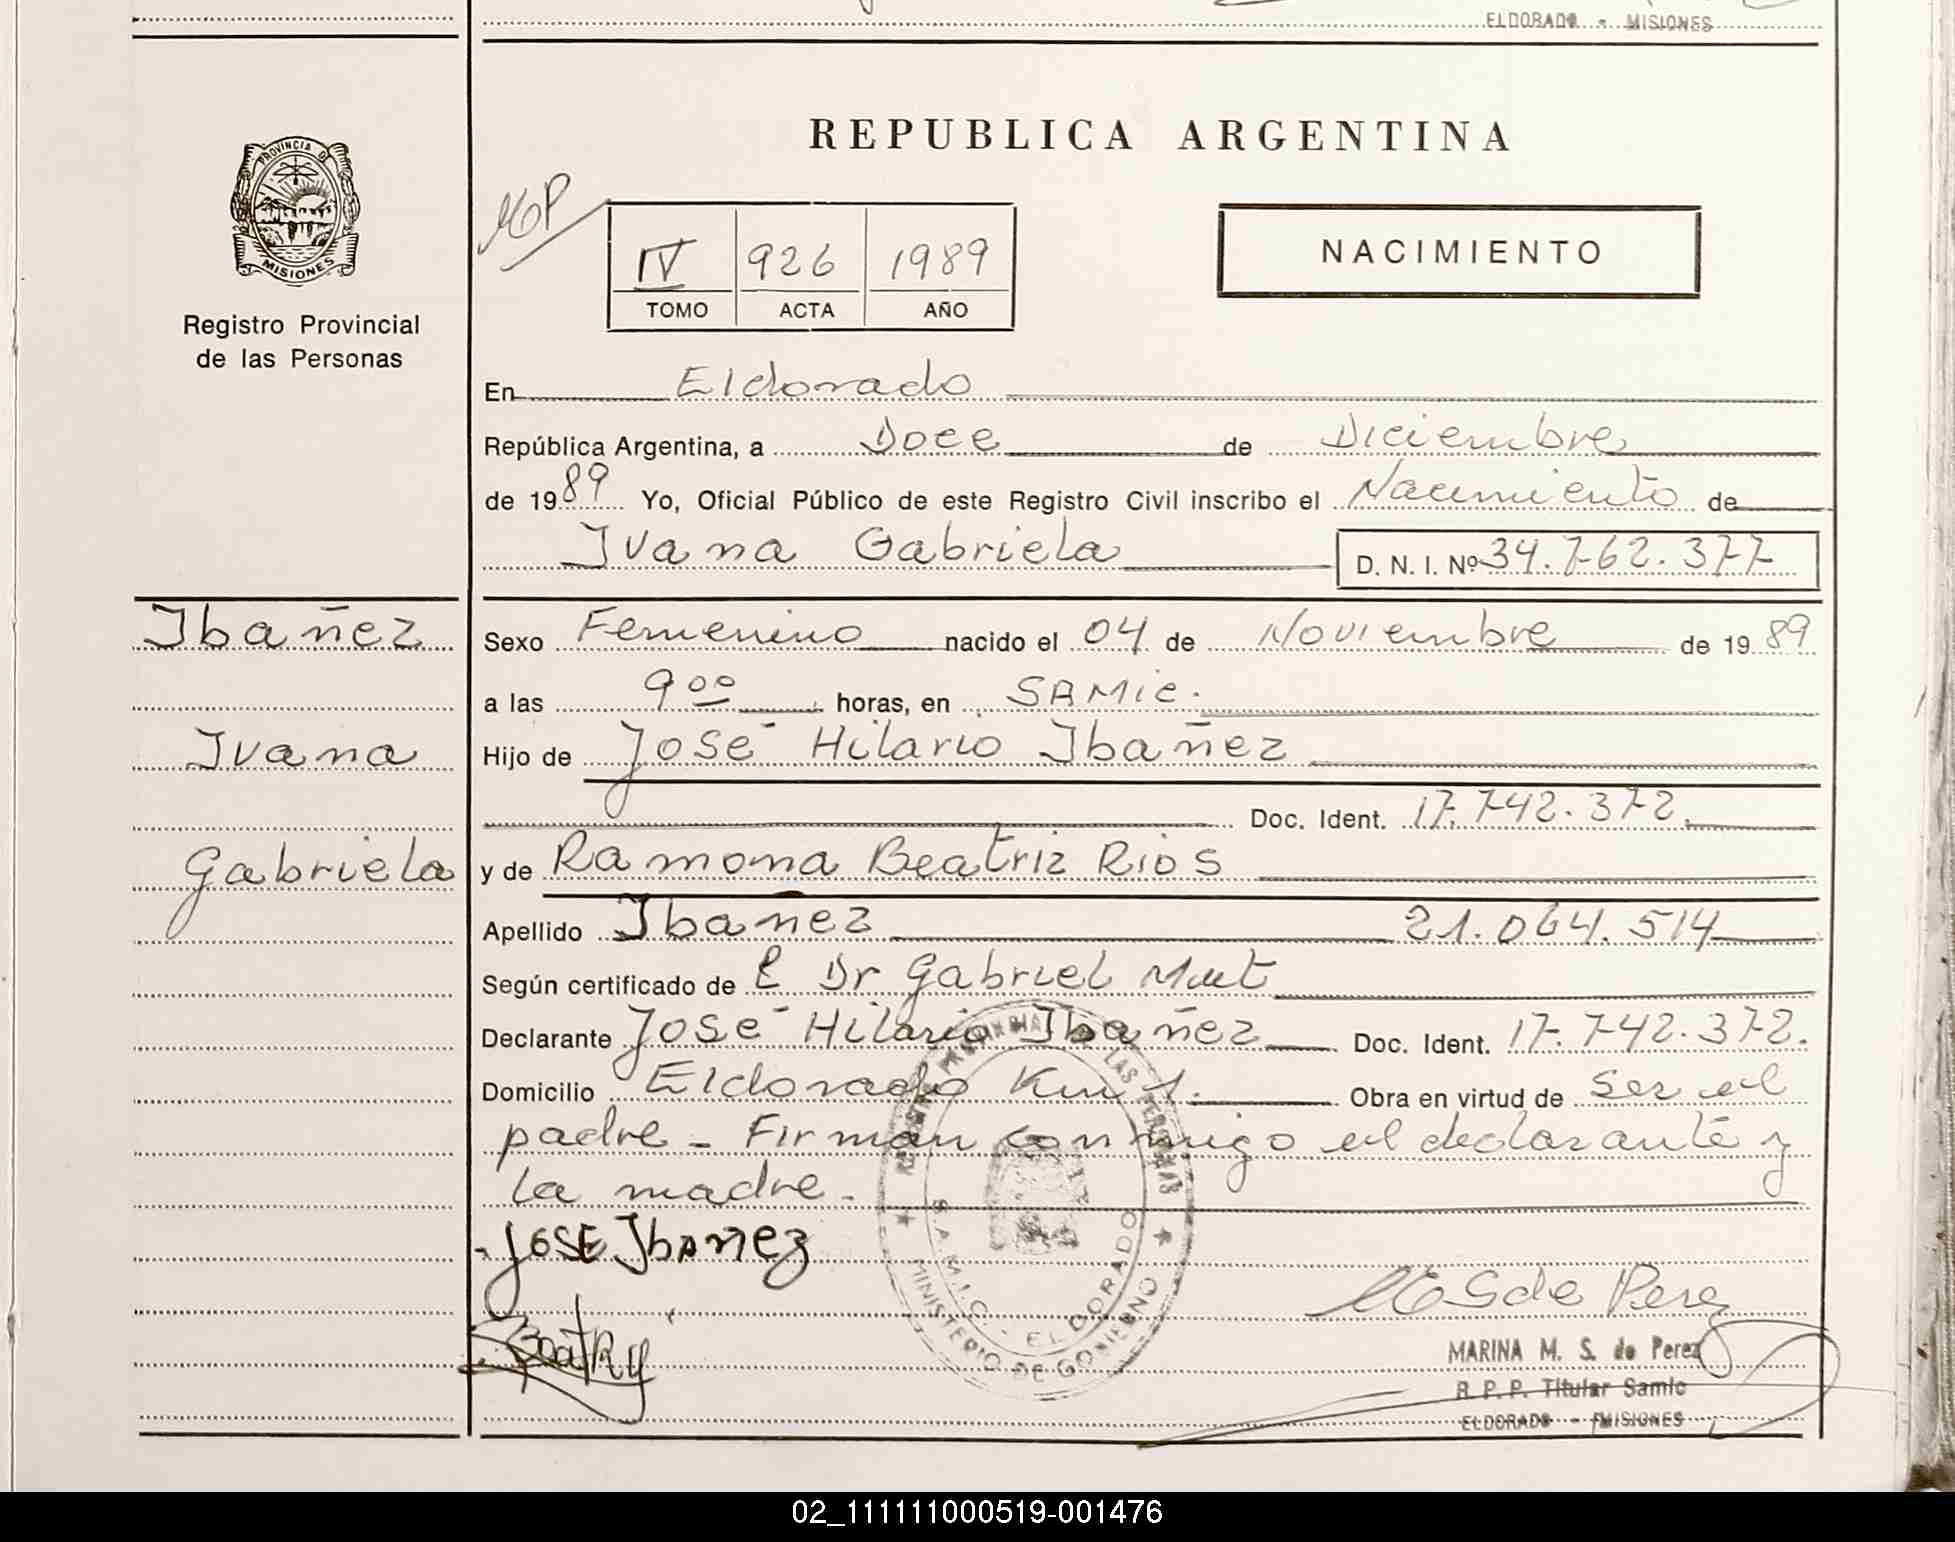 ELDORADO - MISIONES
REPUBLICA ARGENTINA
PROVINCIA DE
MISIONES
Registro Provincial
de las Personas
IV 926 1989
TOMO ACTA AÑO
NACIMIENTO
En Eldorado
República Argentina, a Doce de Diciembre
de 1989 Yo, Oficial Público de este Registro Civil inscribo el Nacimiento de
Ivana Gabriela D. N. I. Nº 34.762.377
Ibañez
Ivana
Gabriela
Sexo Femenino nacido el 04 de Noviembre de 1989
a las 9 00 horas, en SAMIC.
Hijo de José Hilario Ibañez
Doc. Ident. 17.742.372.
y de Ramona Beatriz Rios
Apellido Ibañez 21.064.514
Según certificado de Dr Gabriel
Declarante José Hilario Ibañez Doc. Ident. 17.742.372.
Domicilio Eldorado Km 1. Obra en virtud de ser el
padre - Firman conmigo el declarante y
la madre.
JOSE IbAÑEZ
REGISTRO PROVINCIAL DE LAS PERSONAS
S.A.M.I.C. - ELDORADO
MINISTERIO DE GOBIERNO
MS de Perez
MARINA M. S. de Perez
R. P. P. Titular Samic
ELDORADO - MISIONES
02_111111000519-001476